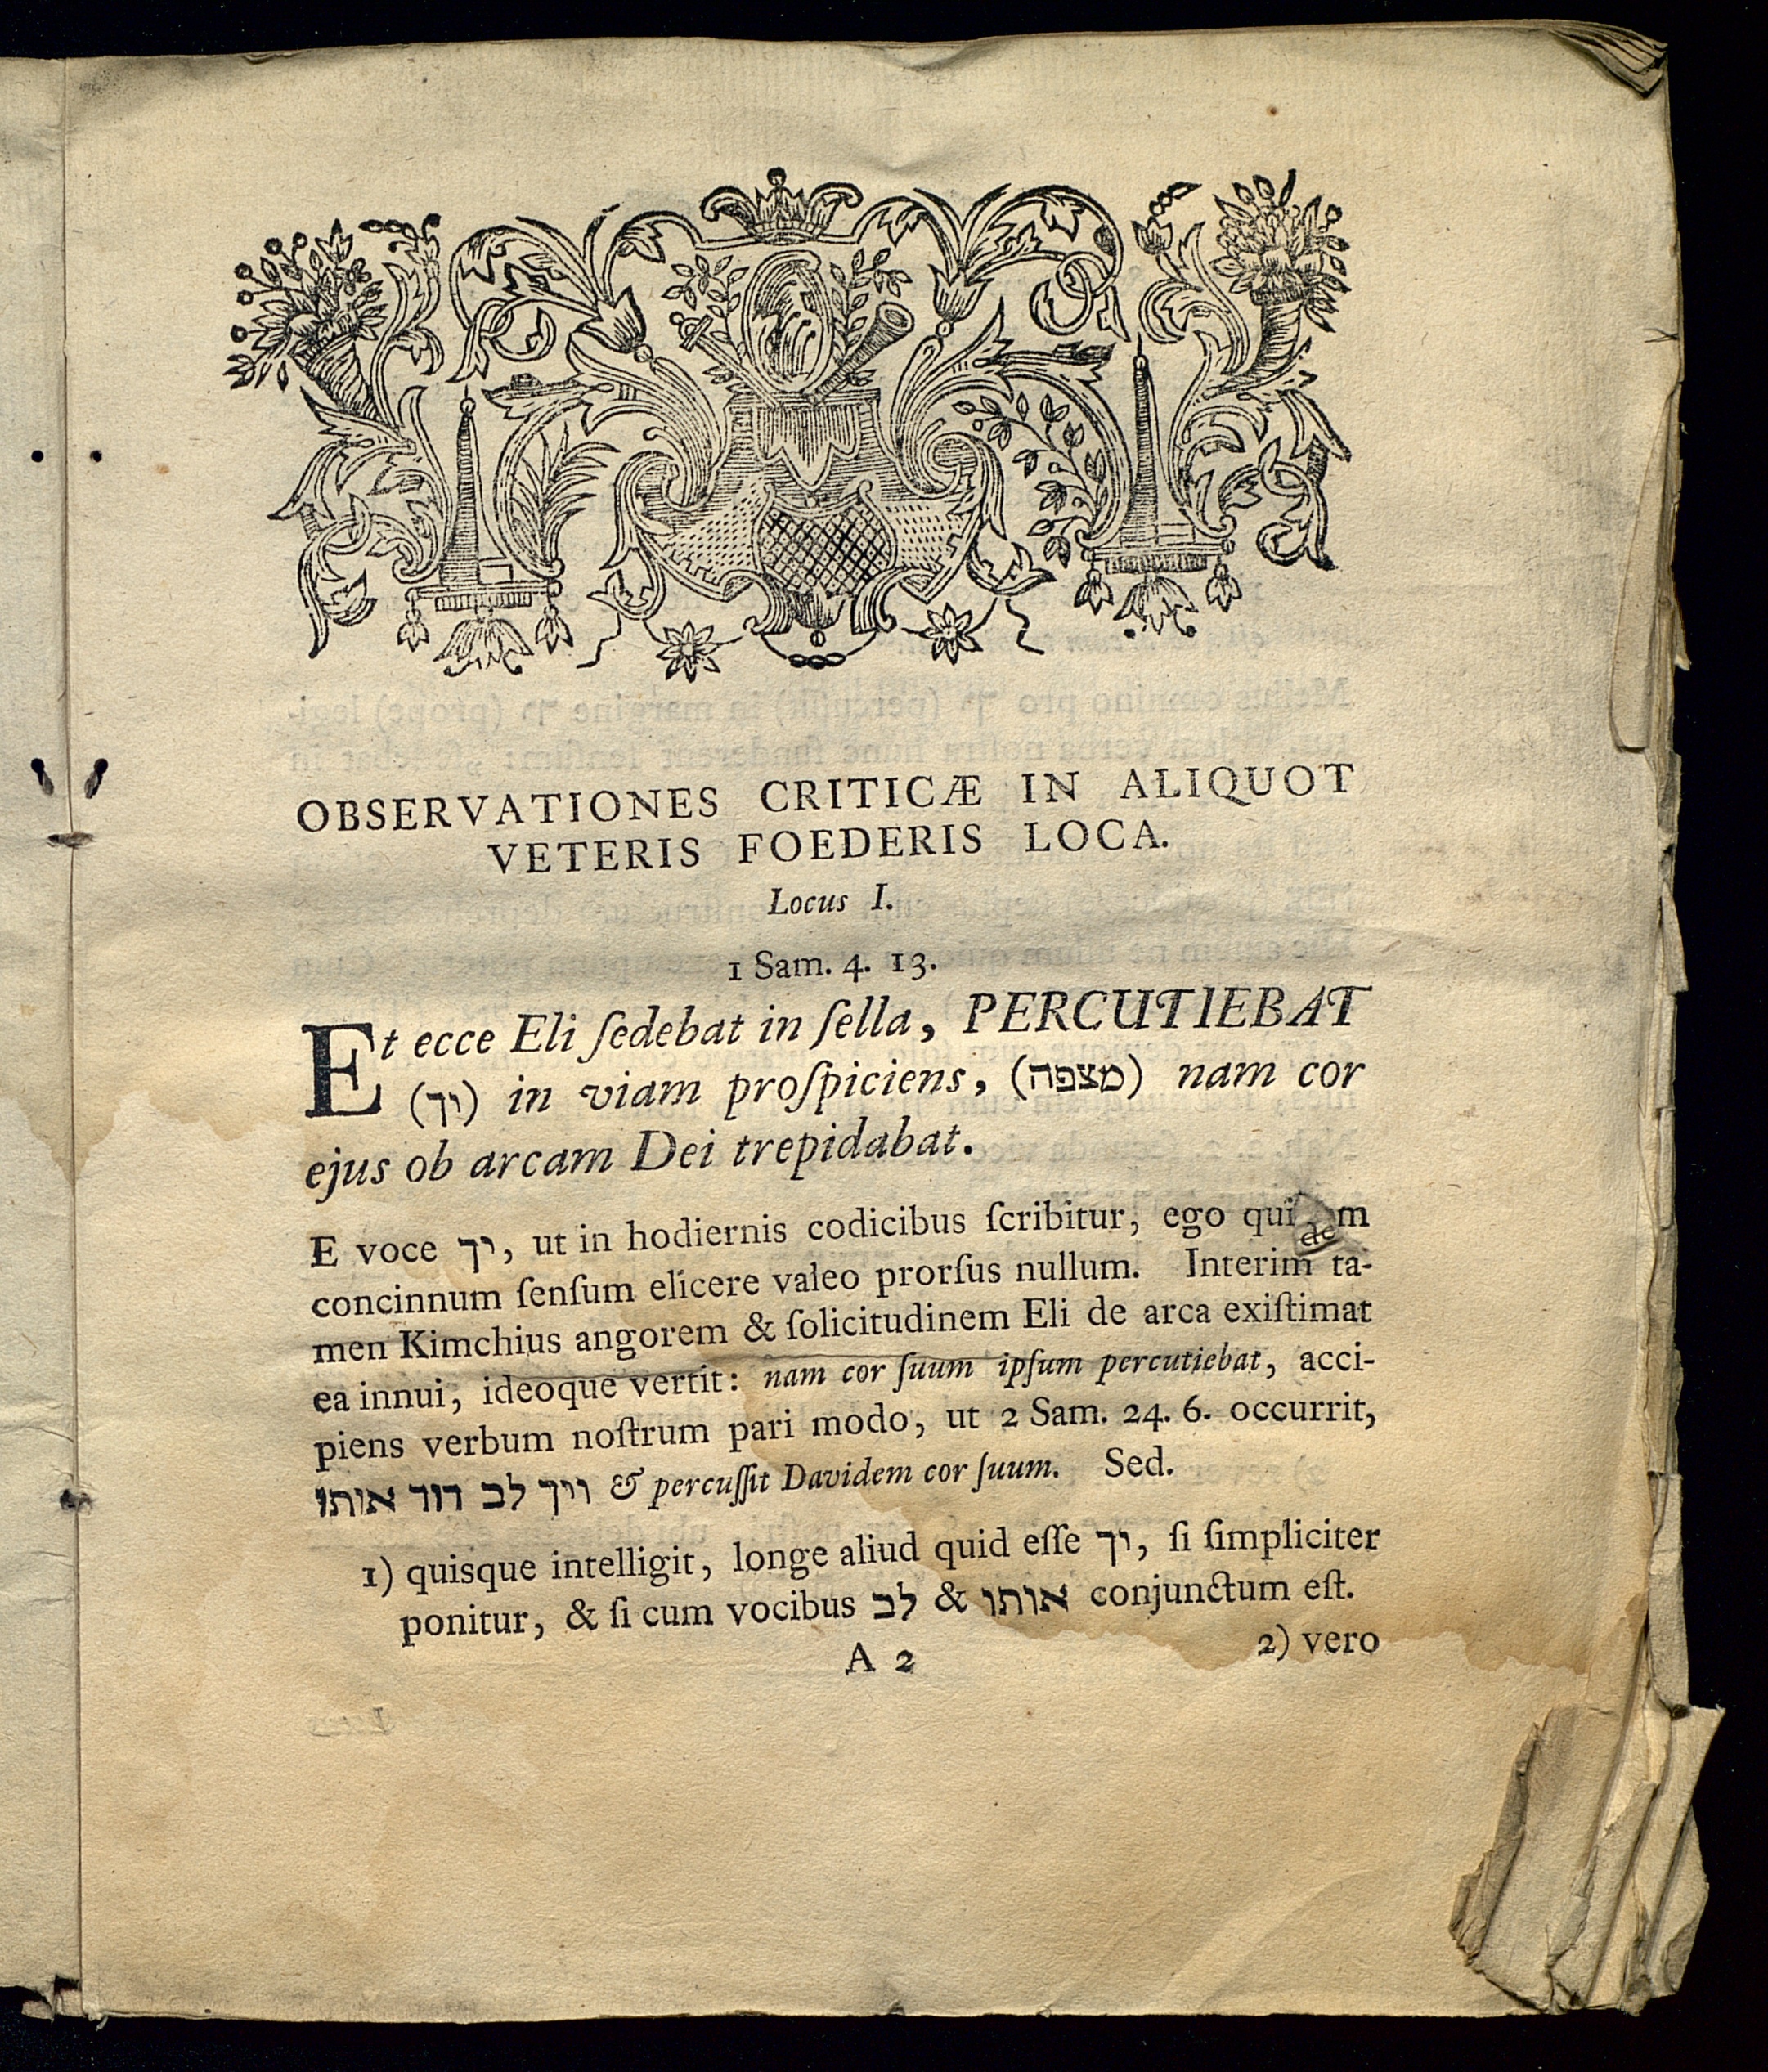 OBSERVATIONES CRITICÆ IN ALIQUOT
VETERIS FOEDERIS LOCA.
Locus I.
1 Sam. 4. 13.
Et ecce Eli ſedebat in ſella, PERCUTIEBAT
(יך) in viam proſpiciens, (מצפה) nam cor
ejus ob arcam Dei trepidabat.
E voce יך, ut in hodiernis codicibus ſcribitur, ego quidem
concinnum ſenſum elicere valeo prorſus nullum. Interim ta-
men Kimchius angorem & ſolicitudinem Eli de arca exiſtimat
ea innui, ideoque vertit: nam cor ſuum ipſum percutiebat, acci-
piens verbum noſtrum pari modo, ut 2 Sam. 24. 6. occurrit,
ויך לב דוד אותו & percuſſit Davidem cor ſuum. Sed.
1) quisque intelligit, longe aliud quid eſſe יך, ſi ſimpliciter
ponitur, & ſi cum vocibus לב & אותו conjunctum eſt.
A 2
2) vero